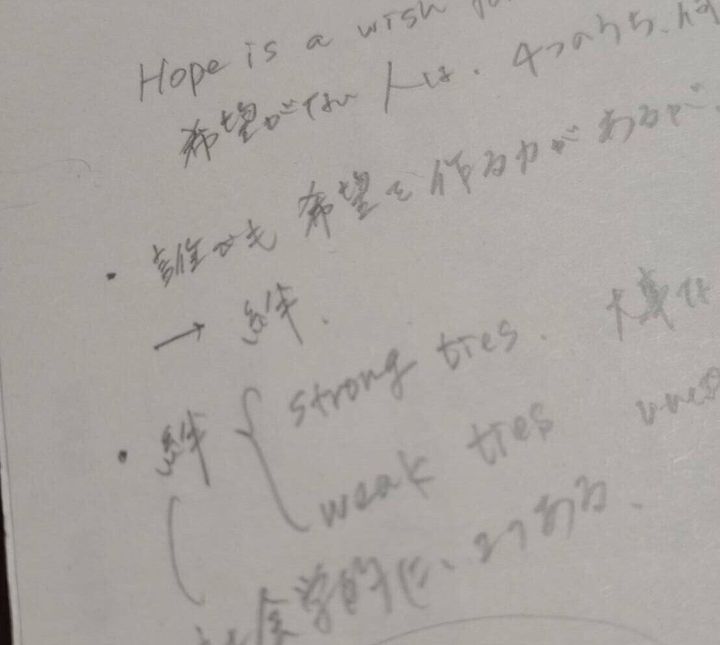 Hope is a wish
希望がない人は、4つのうち、何
・誰でも 希望を作る力がある
→ 絆.
・絆 { strong ties. 大事
weak ties
社会学的に、2つある、